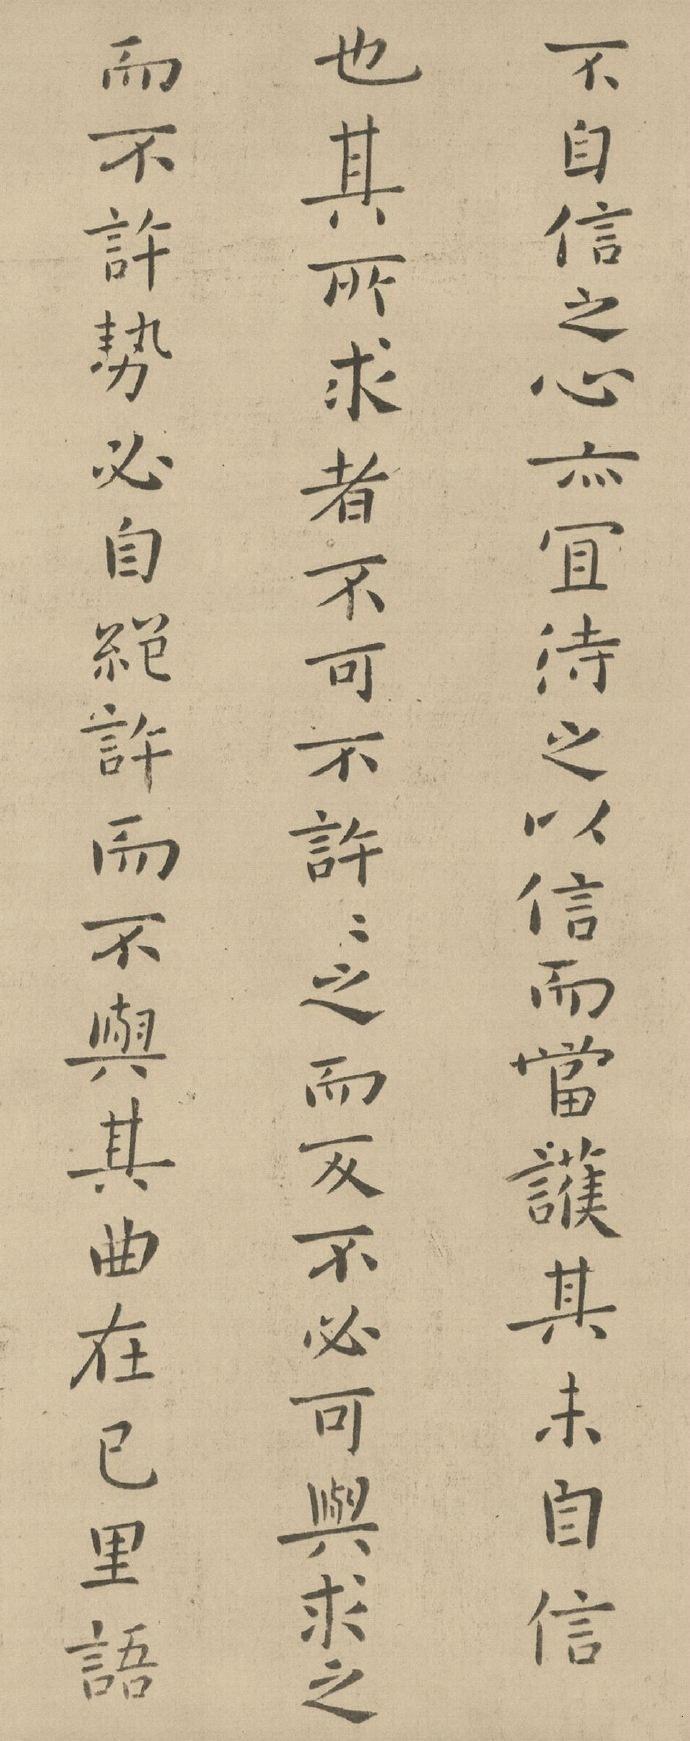 不自信之心亦宜待之以信而當護其未自信
也其所求者不可不許〻之而反不必可與求之
而不許勢必自絕許而不與其曲在己里語